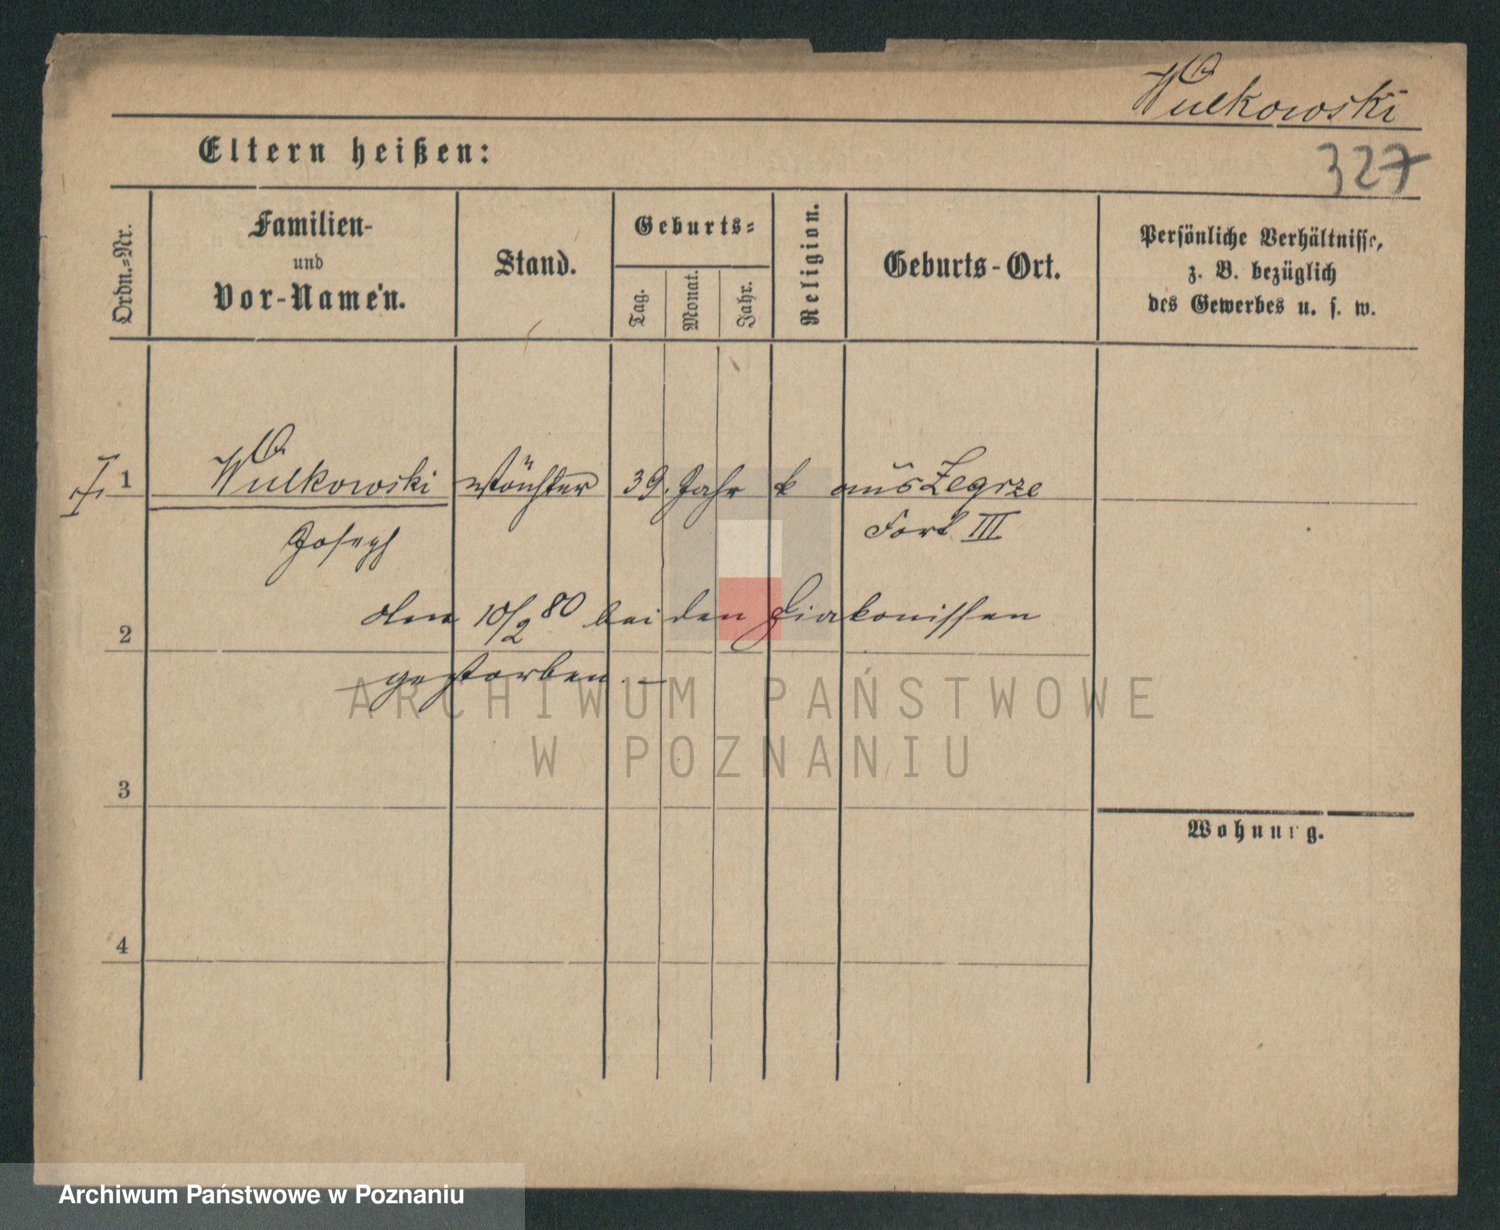 Wulkowski
Eltern heißen:
327
Ordn.-Nr.
Familien-
und
Vor-Namen.
Stand.
Geburts-
Tag.
Monat.
Jahr.
Religion.
Geburts-Ort.
Persönliche Verhältnisse,
z. B. bezüglich
des Gewerbes u. s. w.
1 Wulkowski Wächter 39. Jahr k aus Zegrze
Joseph Fort III
2 den 10/2 80 bei den Diakonissen
gestorben. —
3
Wohnung.
4
ARCHIWUM PAŃSTWOWE
W POZNANIU
Archiwum Państwowe w Poznaniu